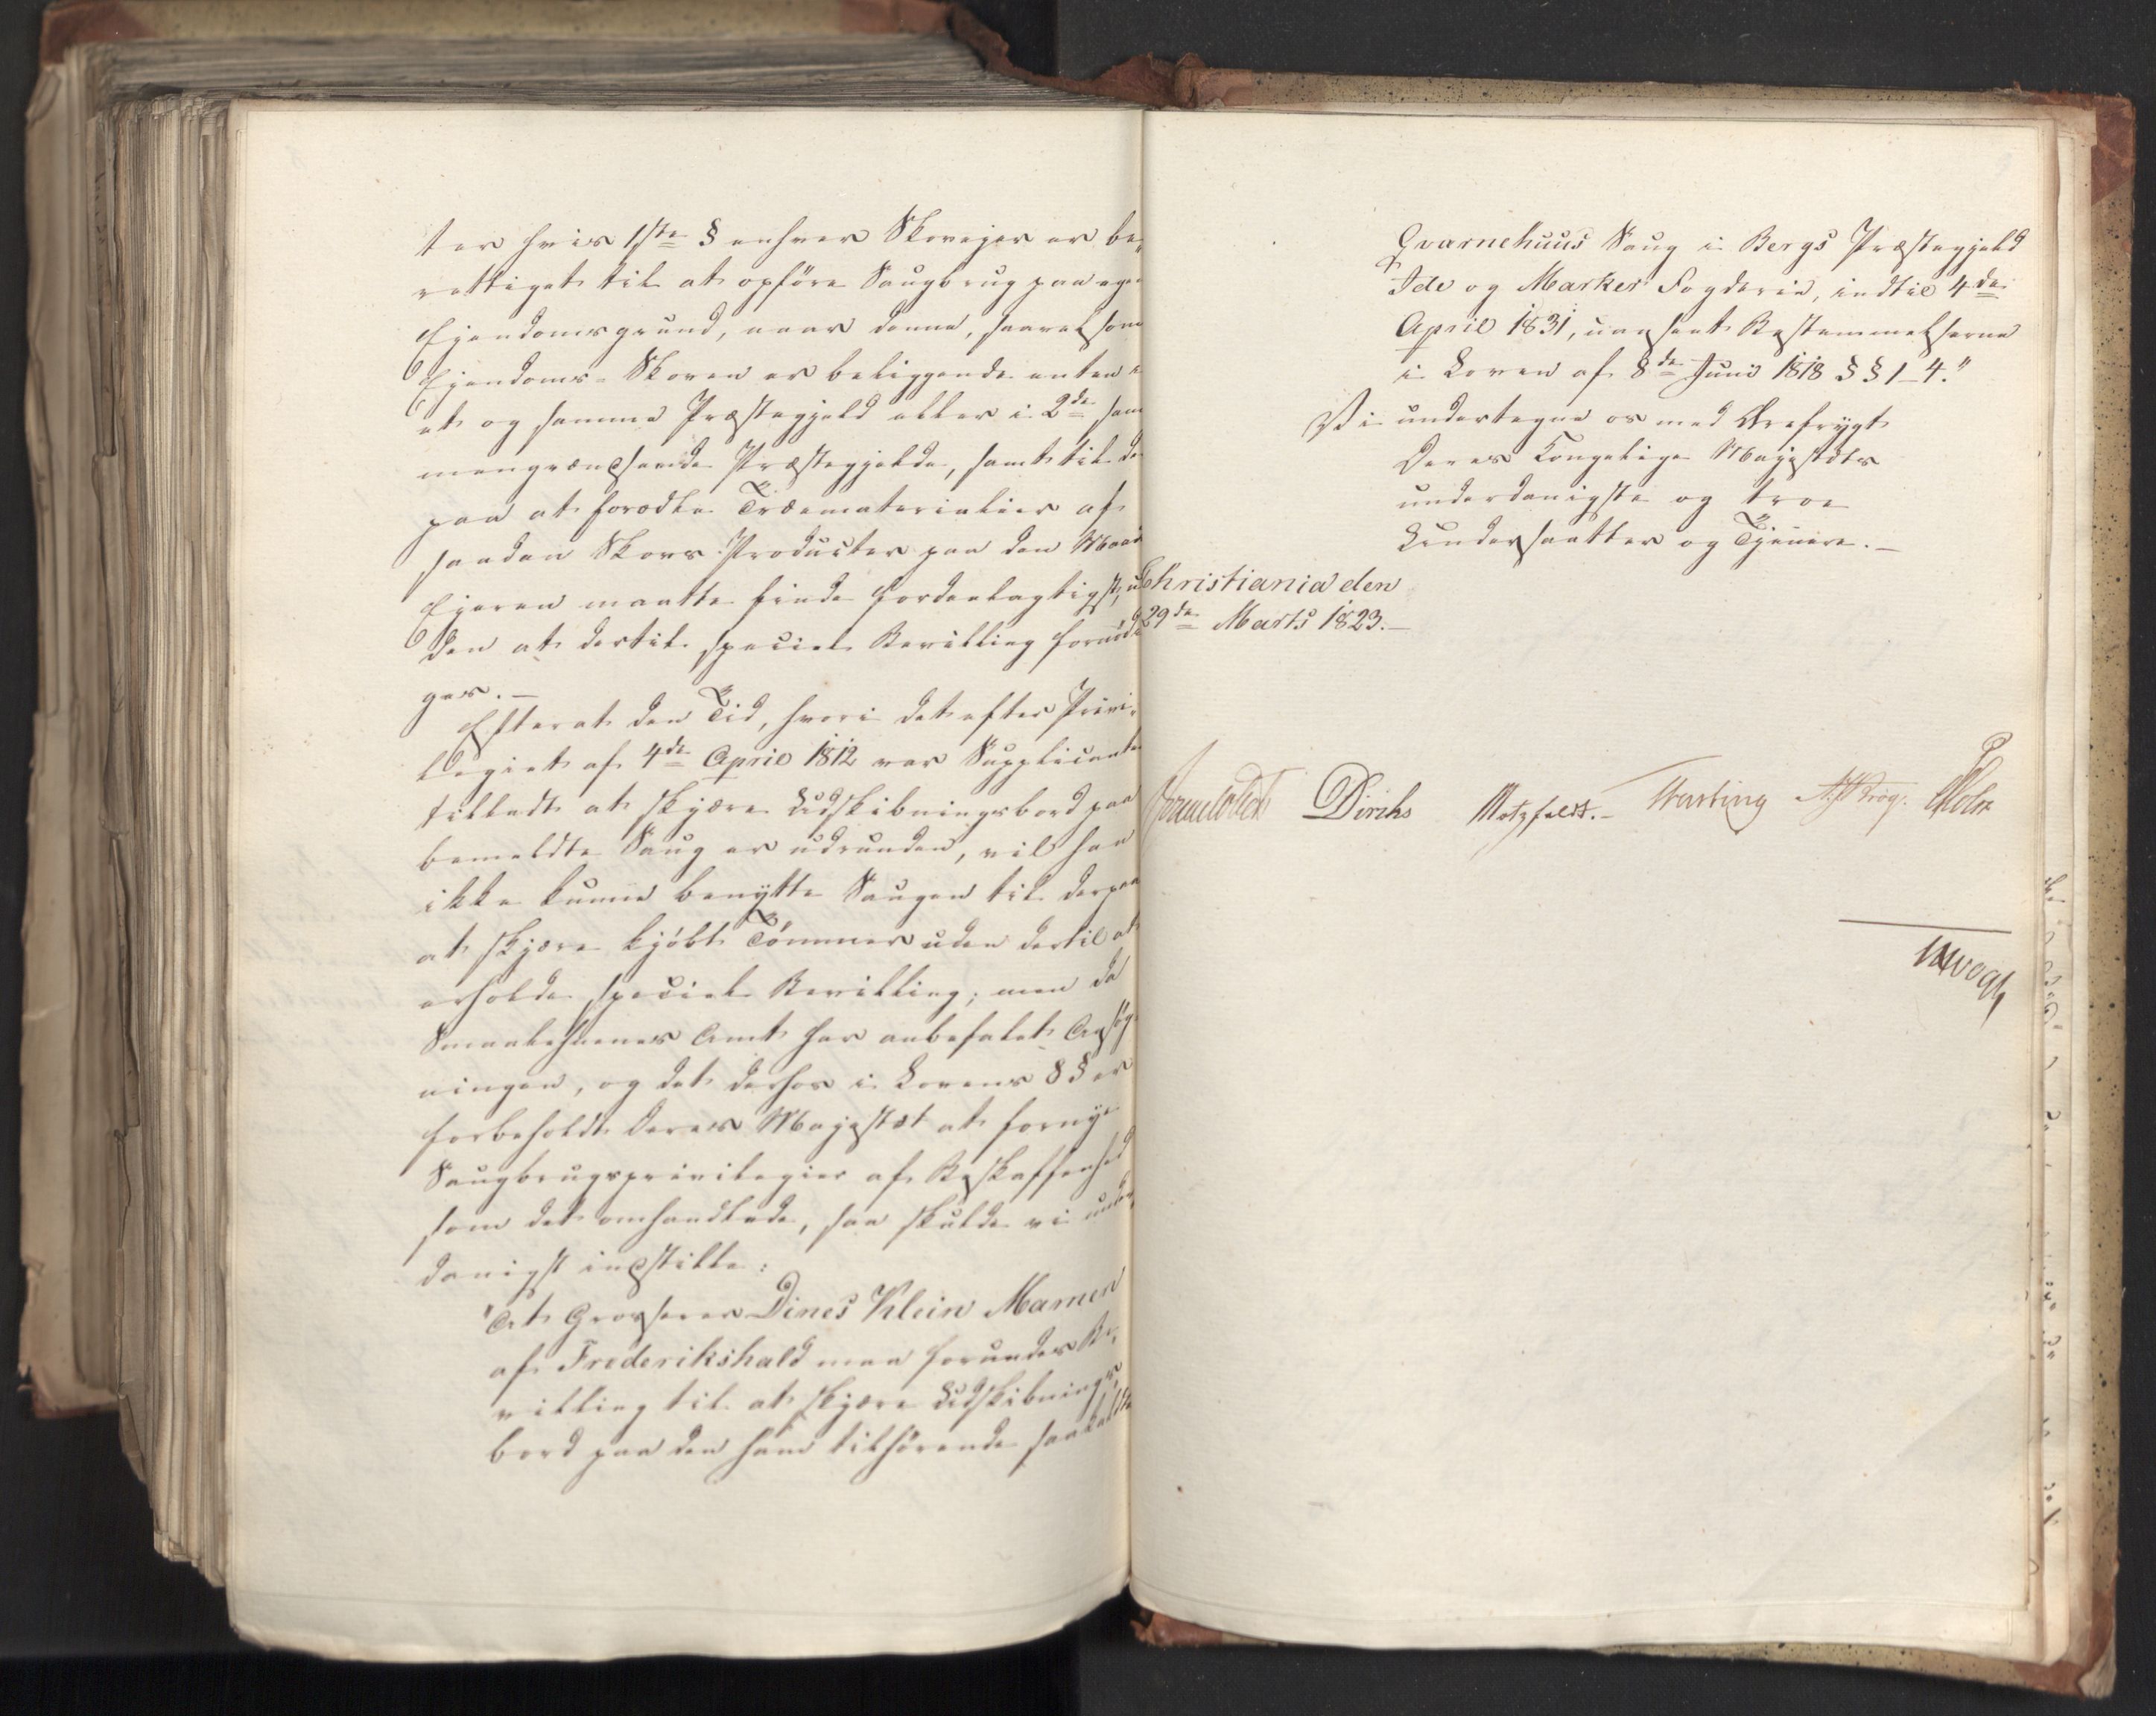 ter hvis 1ste § enhver Skovejer er be-
rettiget til at opföre Saugbrug paa egen
Ejendomsgrund, naar denne, saavelsom
Ejendoms-Skoven er beliggende enten i
et og samme Præstegjeld eller i 2de sam
mengrændsende Præstegjelde, samt til der
paa at forædle Træematerialier af
saadan Skovs Producter paa den Maade
Ejeren maatte finde fordeelagtigst, u
den at dertil speciel Bevilling fornöd
ges.—
Efterat den Tid, hvori det efter Privi-
legiet af 4de April 1812 var Supplicanten
tilladt at skjære Udskibningsbord paa
bemeldte Saug er udrunden, vil han
ikke kunne benytte Saugen til derpaa
at skjære kjöbt Tömmer uden dertil at
erholde speciel Bevilling; men da
Smaalehnenes Amt har anbefalet Ansög
ningen, og det derhos i Lovens 8 § er
forbeholdt Deres Majestæt at forny
Saugbrugsprivilegier af Beskaffenhed
som det omhandlede, saa skulde vi under-
danigst indstille:
"At Grosserer Dines Klein Mamen
af Frederikshald maa forundes Be-
villing til at skjære Udskibnings-
bord paa den ham tilhörende saakaldte
Qvarnehuus Saug i Bergs Præstegjeld
Ide og Markers Fogderie, indtil 4de
April 1831, uanseet Bestemmelserne
i Loven af 8de Juni 1818 §§ 1-4."
Vi undertegne os med Ærefrygt
Deres Kongelige Majestæts
underdanigste og troe
Undersaatter og Tjenere.—
Christiania den
29de Marts 1823.—
Sommerhielm Diriks Motzfeldt.— Krog. Holst
Vogt